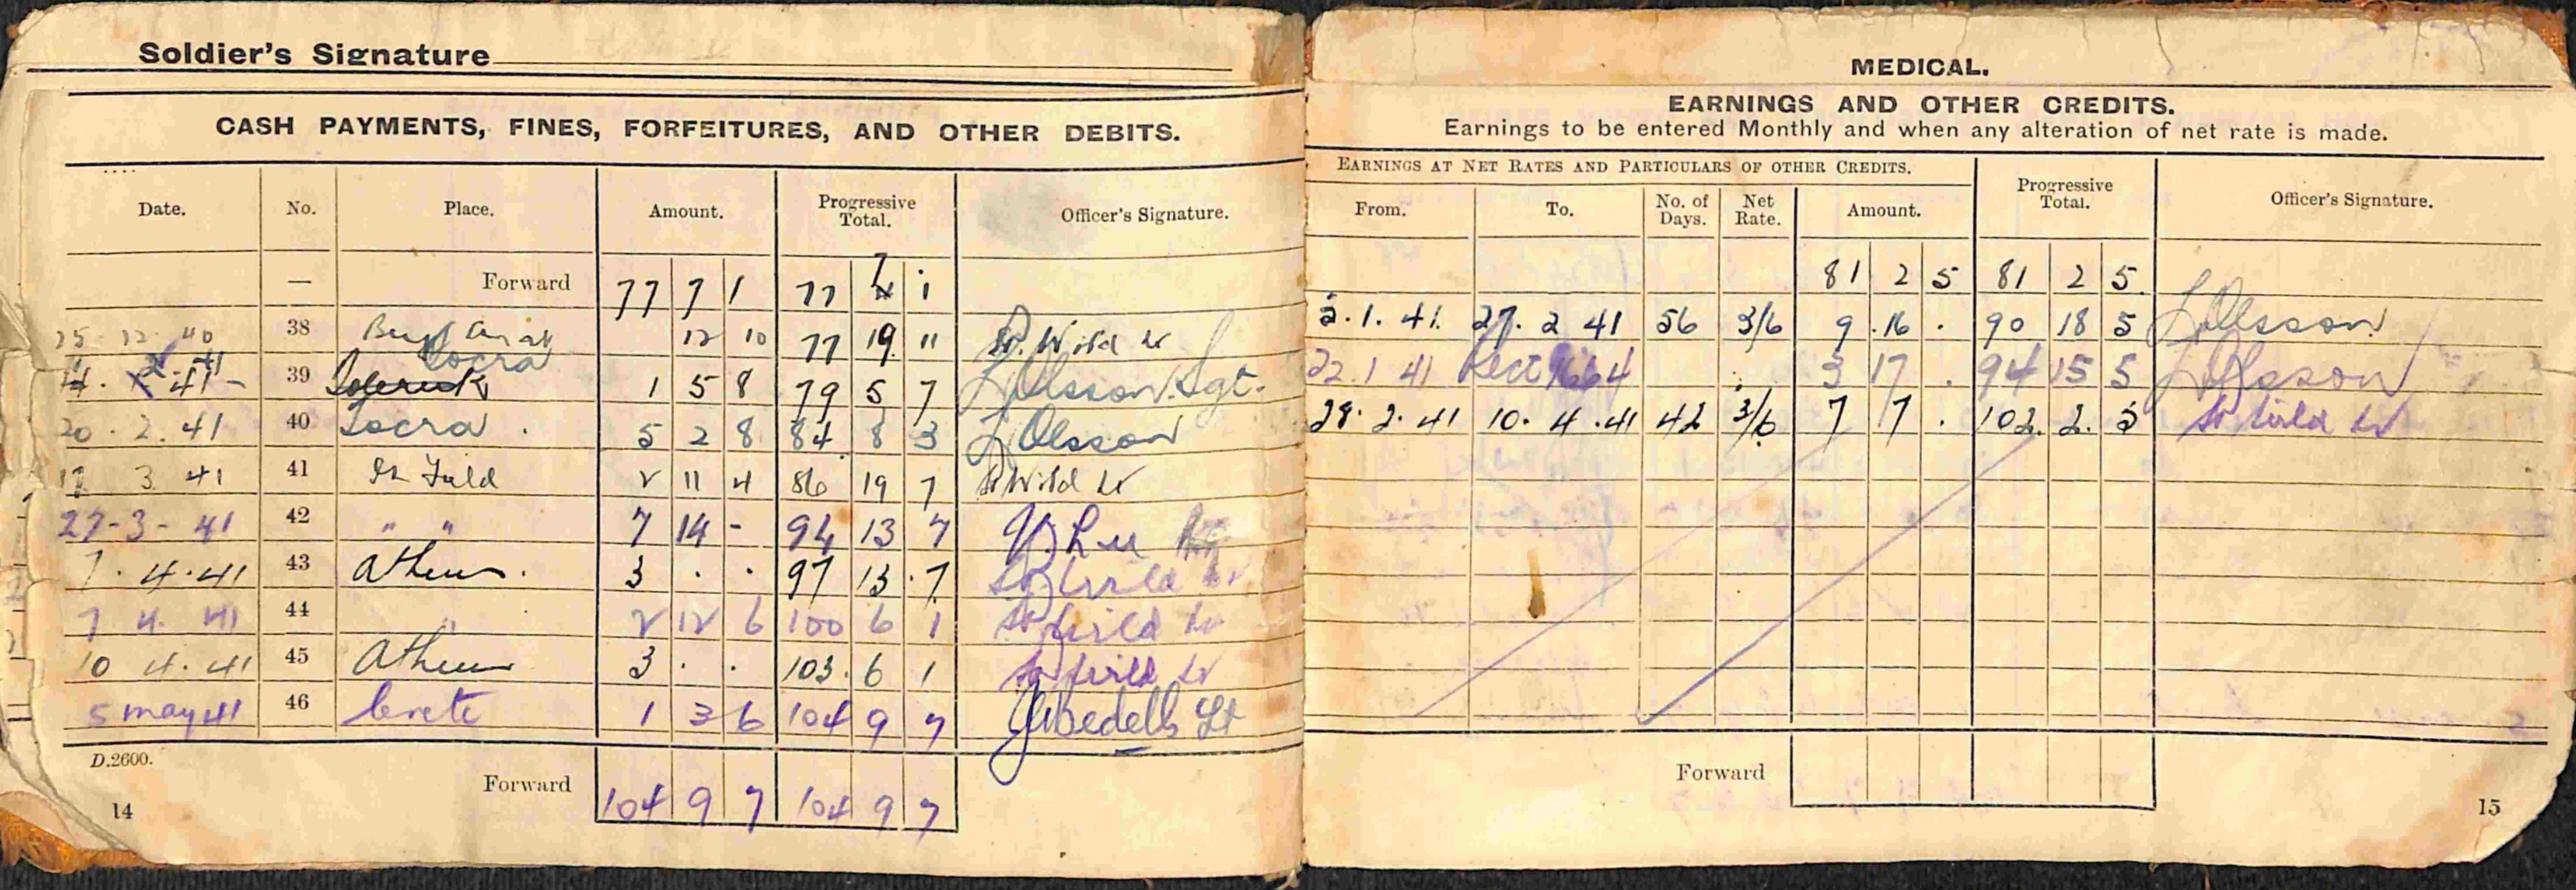 Soldier's Signature
CASH PAYMENTS, FINES, FORFEITURES, AND OTHER DEBITS.
Date. No. Place. Amount. Progressive Total. Officer's Signature.
— Forward 77 7 1 77 7 1
25 - 12 - 40 38 12 10 77 19 11 Wild Lt
14 . 2 . 41 - 39 Locra 1 5 8 79 5 7 L Olsson. Sgt.
20 . 2 . 41 40 Locra . 5 2 8 84 8 3 L Olsson
3 41 41 In Field 2 11 4 86 19 7 Wild Lt
27 - 3 - 41 42 " " 7 14 - 94 13 7
7 . 4 . 41 43 Athens . 3 . . 97 13 . 7 Wild Lt
7 4 41 44 " 2 12 6 100 6 1 Wild Lt
10 4 . 41 45 Athens 3 . . 103 . 6 1 Wild Lt
5 May 41 46 Crete 1 3 6 104 9 7 Bedells Lt
D.2600.
Forward 104 9 7 104 9 7
14
MEDICAL.
EARNINGS AND OTHER CREDITS.
Earnings to be entered Monthly and when any alteration of net rate is made.
EARNINGS AT NET RATES AND PARTICULARS OF OTHER CREDITS.
From. To. No. of Days. Net Rate. Amount. Progressive Total. Officer's Signature.
81 2 5 81 2 5.
3 . 1 . 41. 27 . 2 41 56 3/6 9 . 16 . 90 18 5 L Olsson
22 . 1 41 Rect 1664 3 17 . 94 15 5 L Olsson
28 . 2 . 41 10 . 4 . 41 42 3/6 7 7 . 102 . 2 . 5 Wild Lt
Forward
15